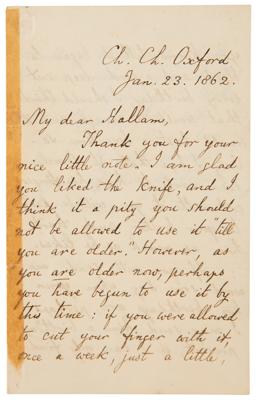 Ch. Ch. Oxford
Jan. 23. 1862.
My dear Hallam,
Thank you for your
nice little note. I am glad
you liked the knife, and I
think it a pity you should
not be allowed to use it "till
you are older." However, as
you are older now, perhaps
you have begun to use it by
this time: if you were allowed
to cut your finger with it,
once a week, just a little,